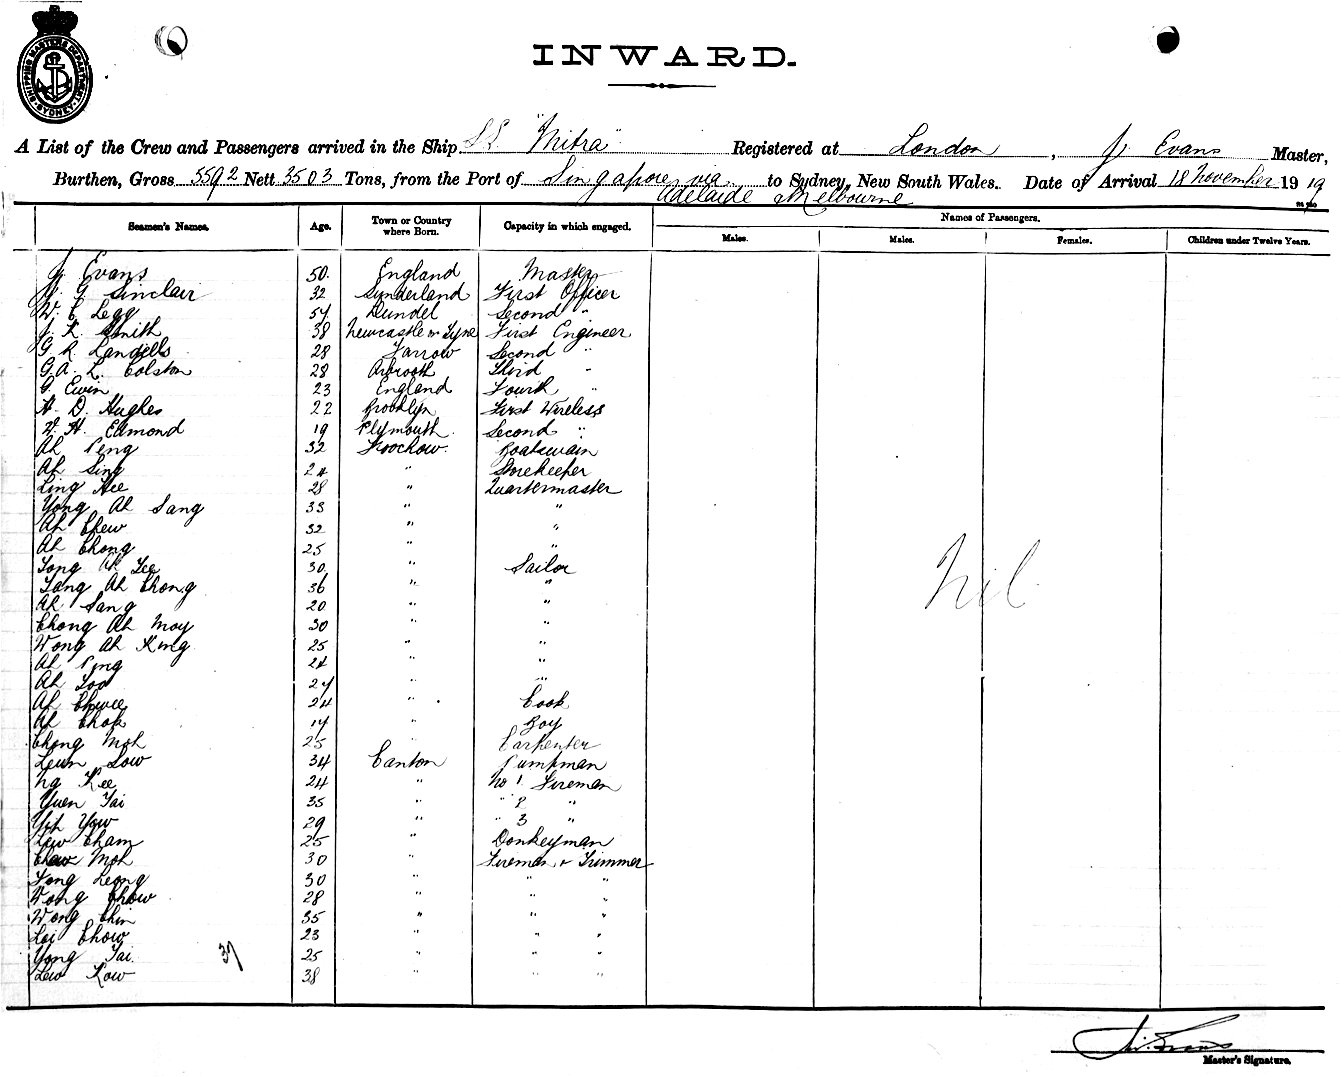 SHIPPING MASTER'S DEPARTMENT SYDNEY
INWARD.
A List of the Crew and Passengers arrived in the Ship SS "Mitra" Registered at London, J Evans Master,
Burthen, Gross 5592 Nett 3503 Tons, from the Port of Singapore via to Sydney, New South Wales. Date of Arrival 18 November 1919
Adelaide & Melbourne
Seamen's Names. Age. Town or Country where Born. Capacity in which engaged. Names of Passengers.
Males. Males. Females. Children under Twelve Years.
J Evans 50 England Master
G Sinclair 32 Sunderland First Officer
W. C Legg 54 Second "
J. R. Smith 38 Newcastle on Tyne First Engineer
G R Landells 28 Jarrow Second "
G.A. L. Colston 28 Third "
G. Ewin 23 England Fourth "
H. D. Hughes 22 Brooklyn First Wireless
H. Edmond 19 Plymouth Second "
Ah Peng 32 Foochow Boatswain
Ah Sing 24 " Storekeeper
Ling Hee 28 " Quartermaster
Yong Ah Sang 33 " "
Ah Chew 32 " "
Ah Chong 25 " "
Tong Ah Lee 30 " Sailor
Tang Ah Chong 36 " "
Ah Sang 20 " "
Chong Ah Moy 30 " "
Wong Ah King 25 " "
Ah Ping 24 " "
Ah Loo 27 " "
Ah Chwee 24 " Cook
Ah Chok 17 " Boy
Chong Moh 25 " Carpenter
Leun Sow 34 Canton Pumpman
Ng Kee 24 " No 1 Fireman
Yuen Tai 35 " " 2 "
Yip Yow 29 " " 3 "
Lew Cham 25 " Donkeyman
Chaw Moh 30 " Fireman & Trimmer
Tong Leong 30 " " "
Wong Chow 28 " " "
Wong Chin 35 " " "
Lai Chow 23 " " "
Yong Tai 25 " " "
Lew Kow 38 " " "
37
Nil
J. Evans
Master's Signature.